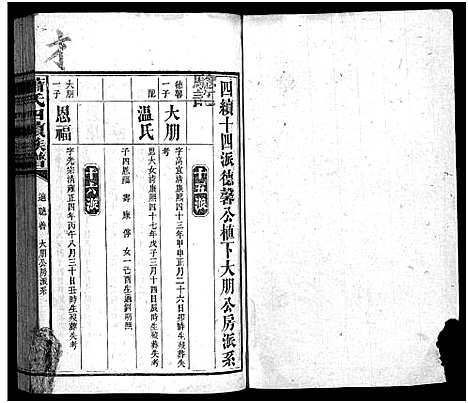 四續十四派德馨公植下大朋公房派系
十五派
德馨
一子
大朋
字高宜清康熙四十三年甲申二月二十六日
生歿葬失考
配
溫氏
思大女清康熙四十七年戊子三月十四日辰時生歿葬失考
子四恩福
壽
康
俊
女一己酉生適劉明照
十六派
大朋
一子
恩福
字先宗清雍正四年丙午八月三十日丑時生歿葬失考
蕭氏四續族譜
大朋公房派系
才